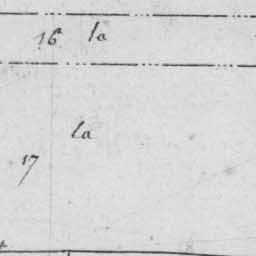 16 la
la
17